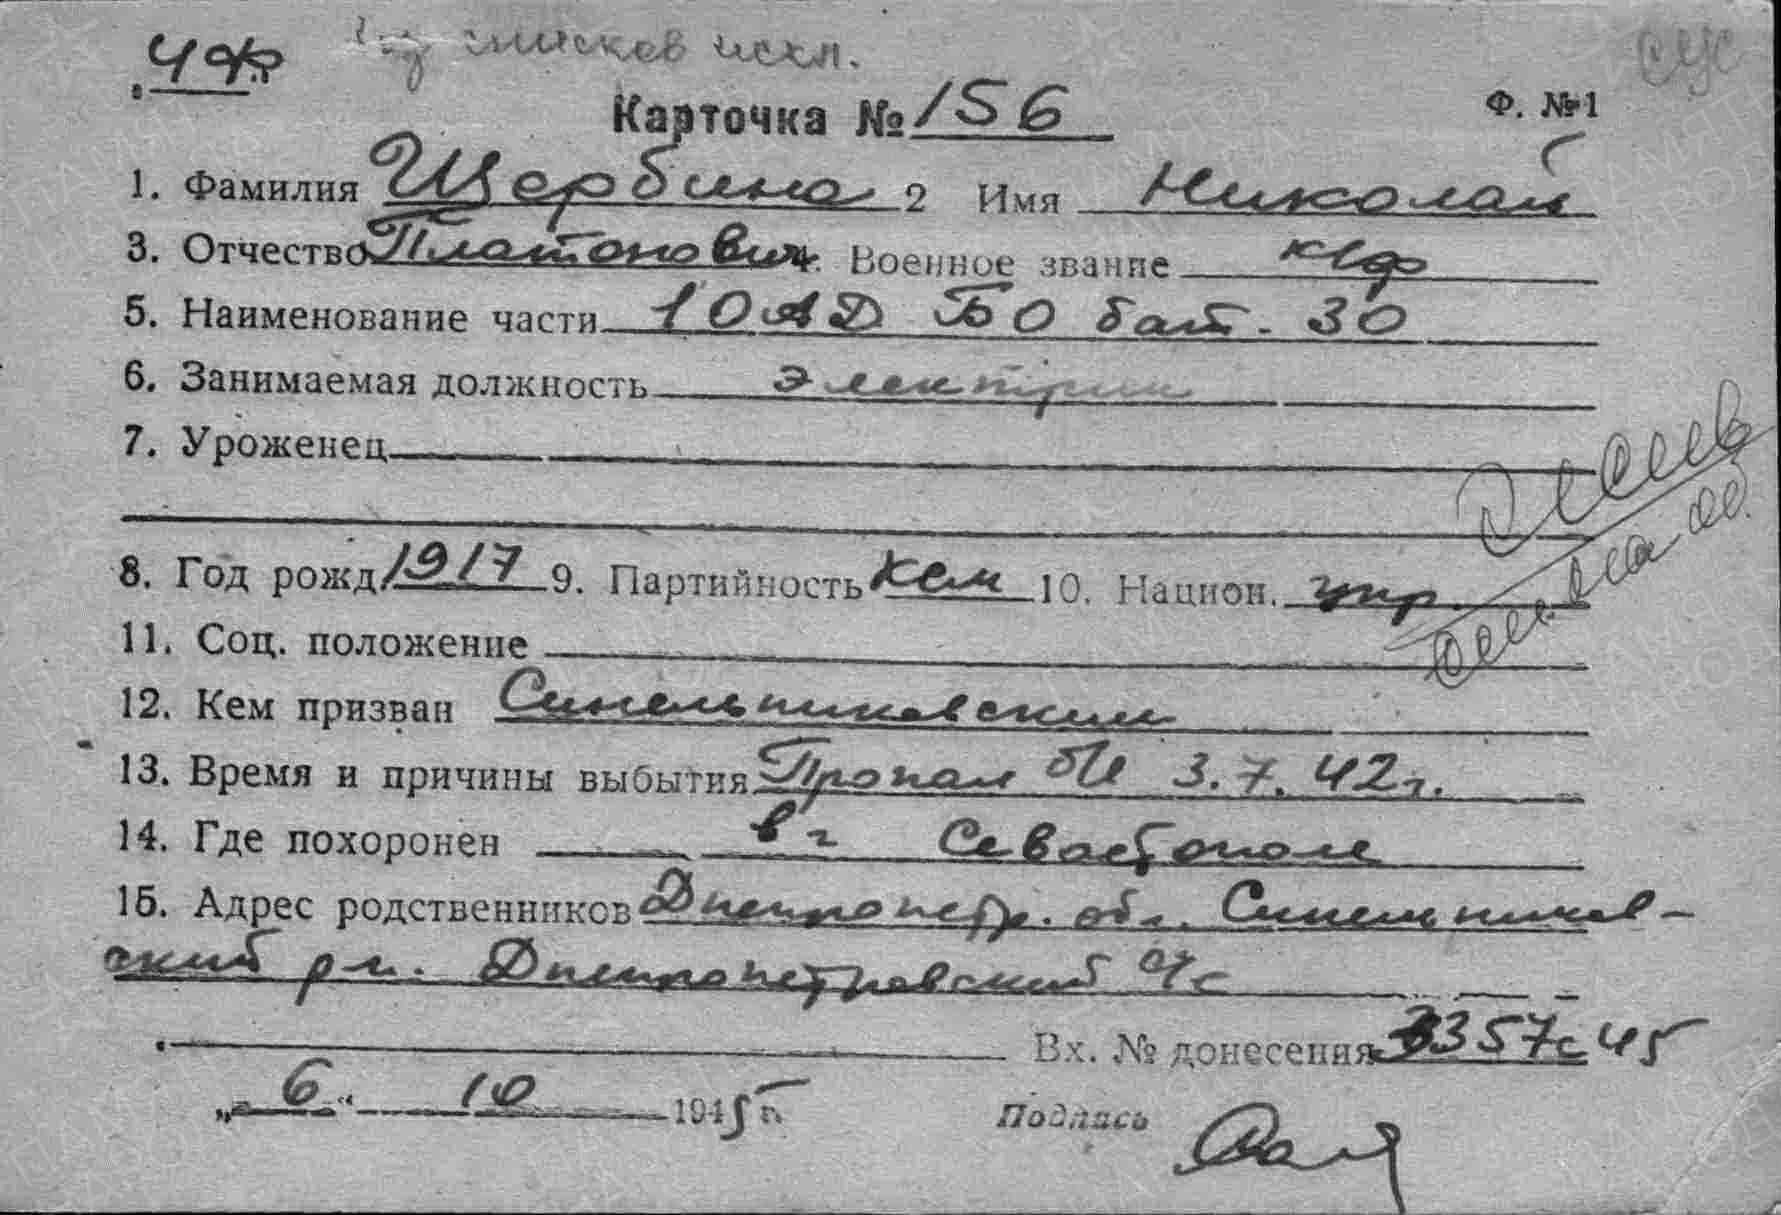 ЧФ
Из списков искл.
Карточка № 156
Ф. №1
1. Фамилия Щербина 2 Имя Николай
3. Отчество Платонович 4. Военное звание кнф
5. Наименование части 10АД БО бат. 30
6. Занимаемая должность электрик
7. Уроженец
8. Год рожд. 1917 9. Партийность ксм 10. Национ. укр.
11. Соц. положение
12. Кем призван Синельниковским
13. Время и причины выбытия Пропал б/и 3.7.42г.
14. Где похоронен в г Севастополе
15. Адрес родственников Днепропетр. обл. Синельников-
ский р-н. Днепропетровский с/с
Вх. № донесения 3357с 45
„6“ 10 1945 г.
Подпись